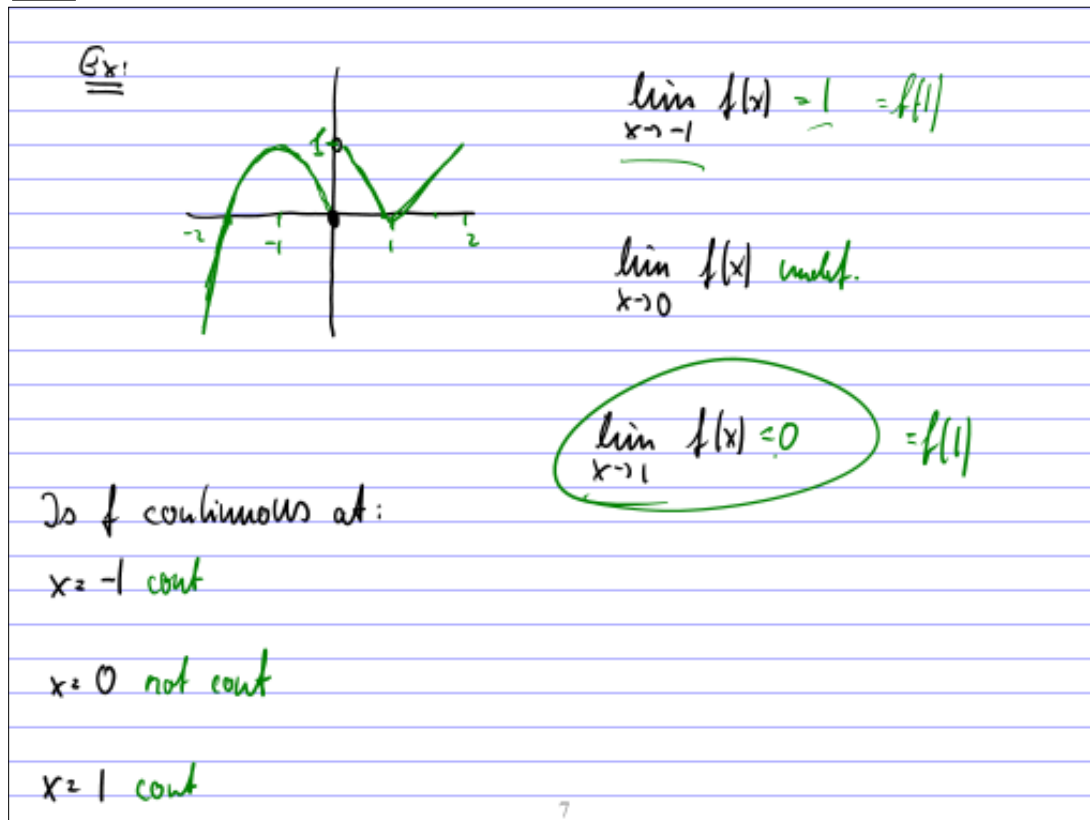 Ex:
1
-2 -1 1 2
lim f(x) = 1 = f(1)
x→-1
lim f(x) undef.
x→0
lim f(x) = 0 = f(1)
x→1
Is f continuous at:
x= -1 cont
x= 0 not cont
x= 1 cont
7